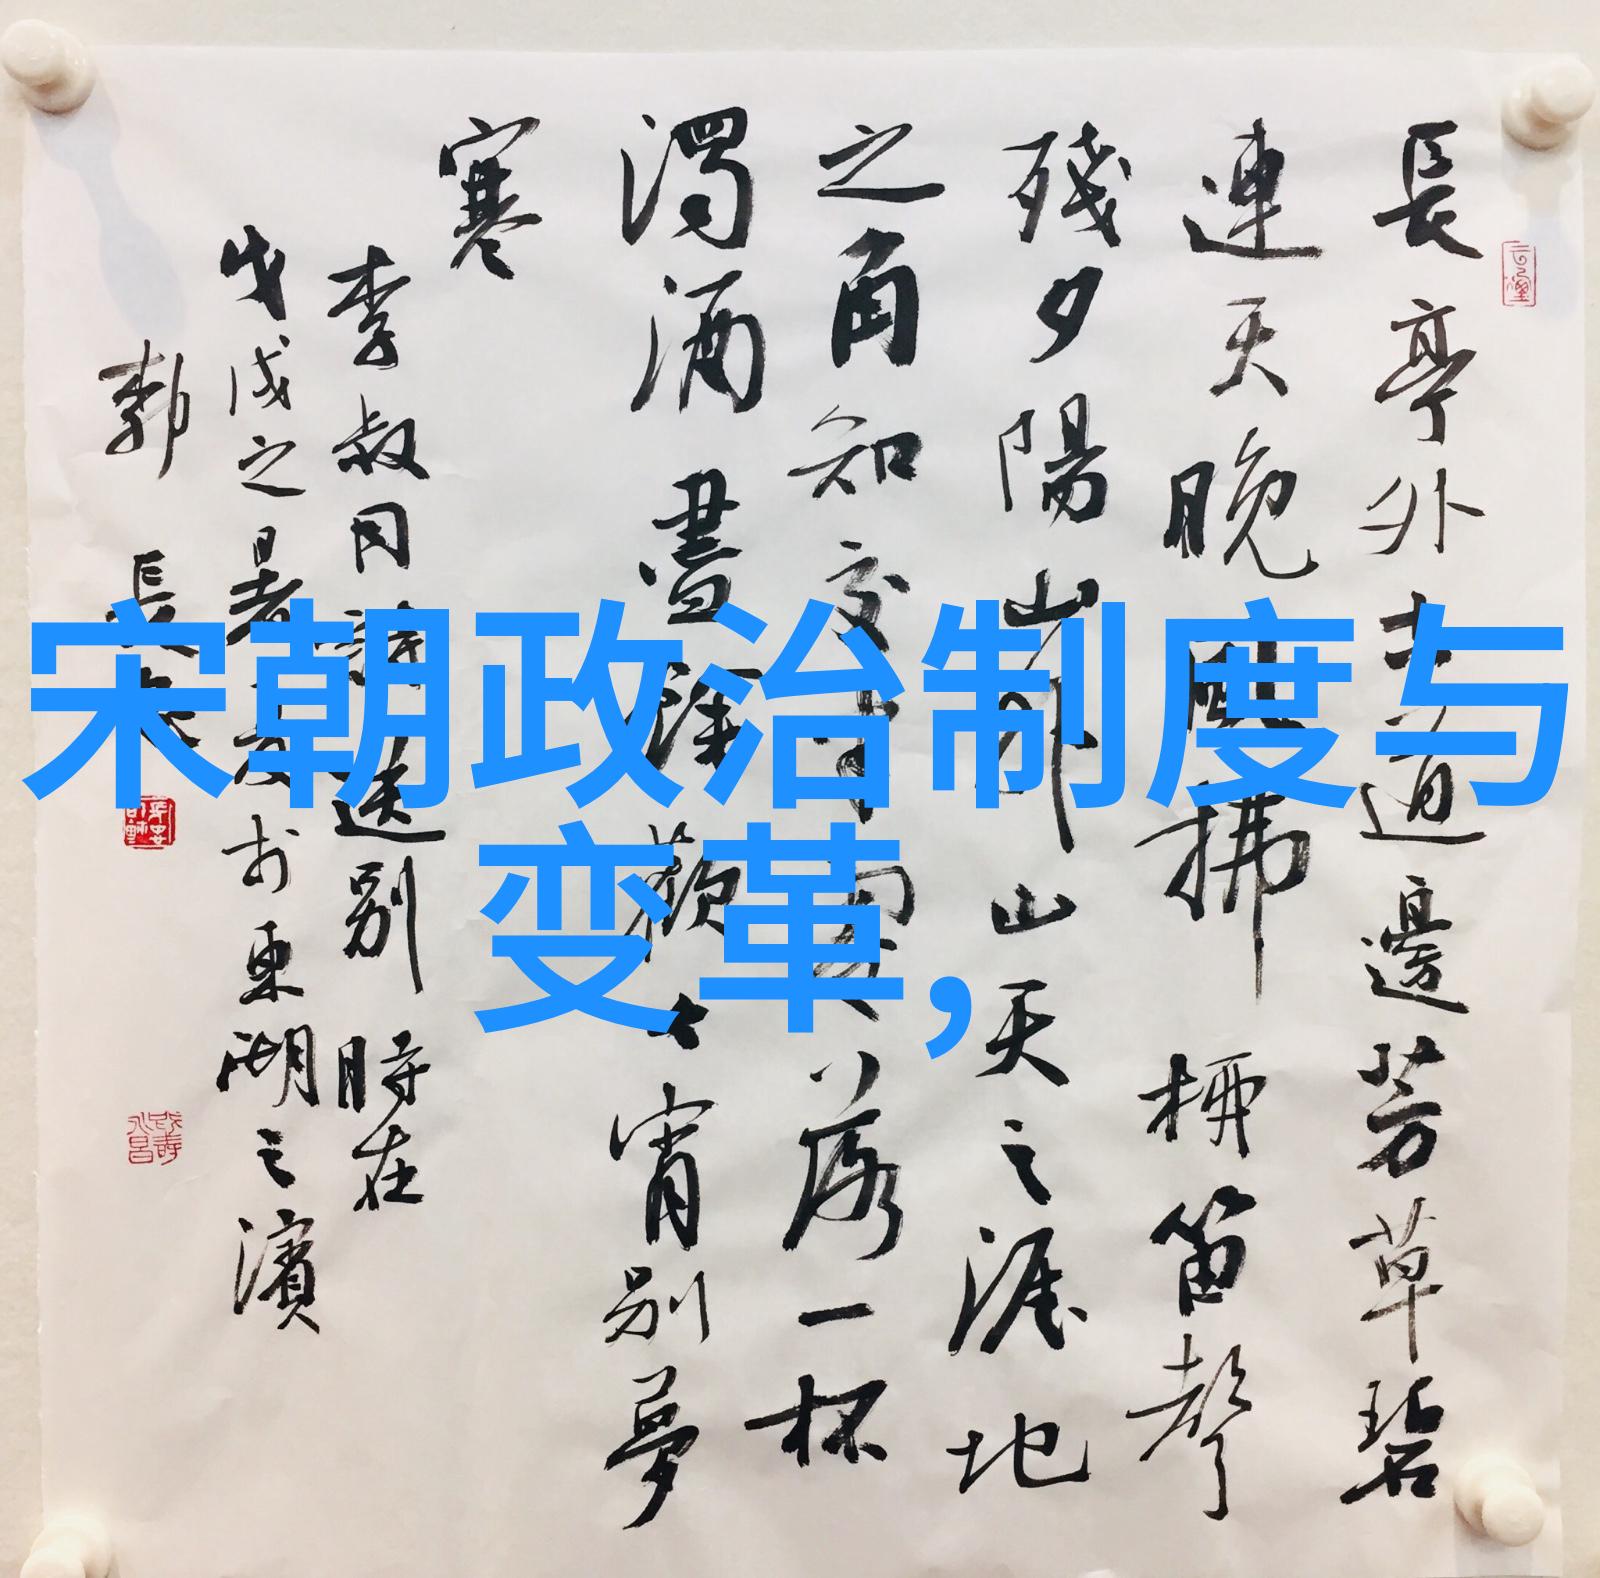 長亭外古道邊芳草碧
連天晚風拂柳笛聲
殘夕陽山外山天之涯地
之角知交半零落一杯
濁酒盡餘歡今宵別夢
寒
李叔同詩送别 時在
戊戌之暑夏於東湖之濱
郭 長
宋朝政治制度与
变革,